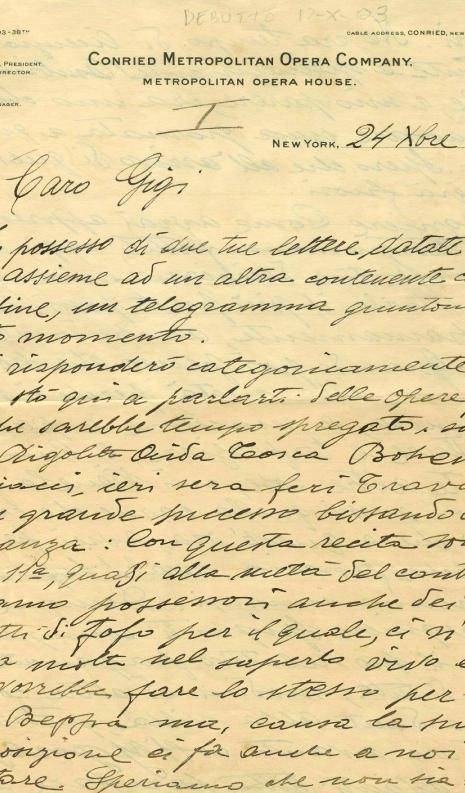 DEBUTTO 17-X-03
03-38TH
CABLE ADDRESS, CONRIED, NEW
PRESIDENT.
DIRECTOR.
CONRIED METROPOLITAN OPERA COMPANY.
METROPOLITAN OPERA HOUSE.
AGER.
I
NEW YORK, 24 Xbre
Caro Gigi
possesso di due tue lettere, datate
assieme ad un altra contenente
fine, un telegramma giuntom
momento.
risponderò categoricamente
stò qui a parlarti delle opere
sarebbe tempo spregato.
Rigoletto Aida Tosca Bohem
iacci, ieri sera feci Trav
grande successo bissando
anza: Con questa recita son
11a, quasi alla metà del cont
amo possessori anche dei
tti di Fofo per il quale, ci
molto nel saperlo vivo e
vorrebbe fare lo stesso per
Beppa ma, causa la su
osizione ci fa anche a noi
tare. Speriamo che non sia